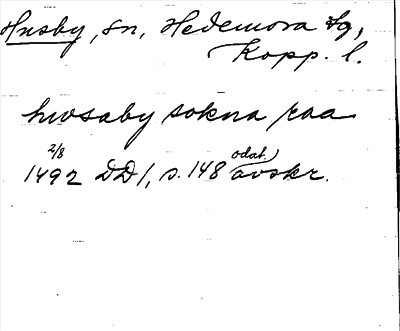 Husby, sn, Hedemora tg,
Kopp. l.
hwsaby sokna raa
2/8
1492 DD1, s. 148 odat. avskr.